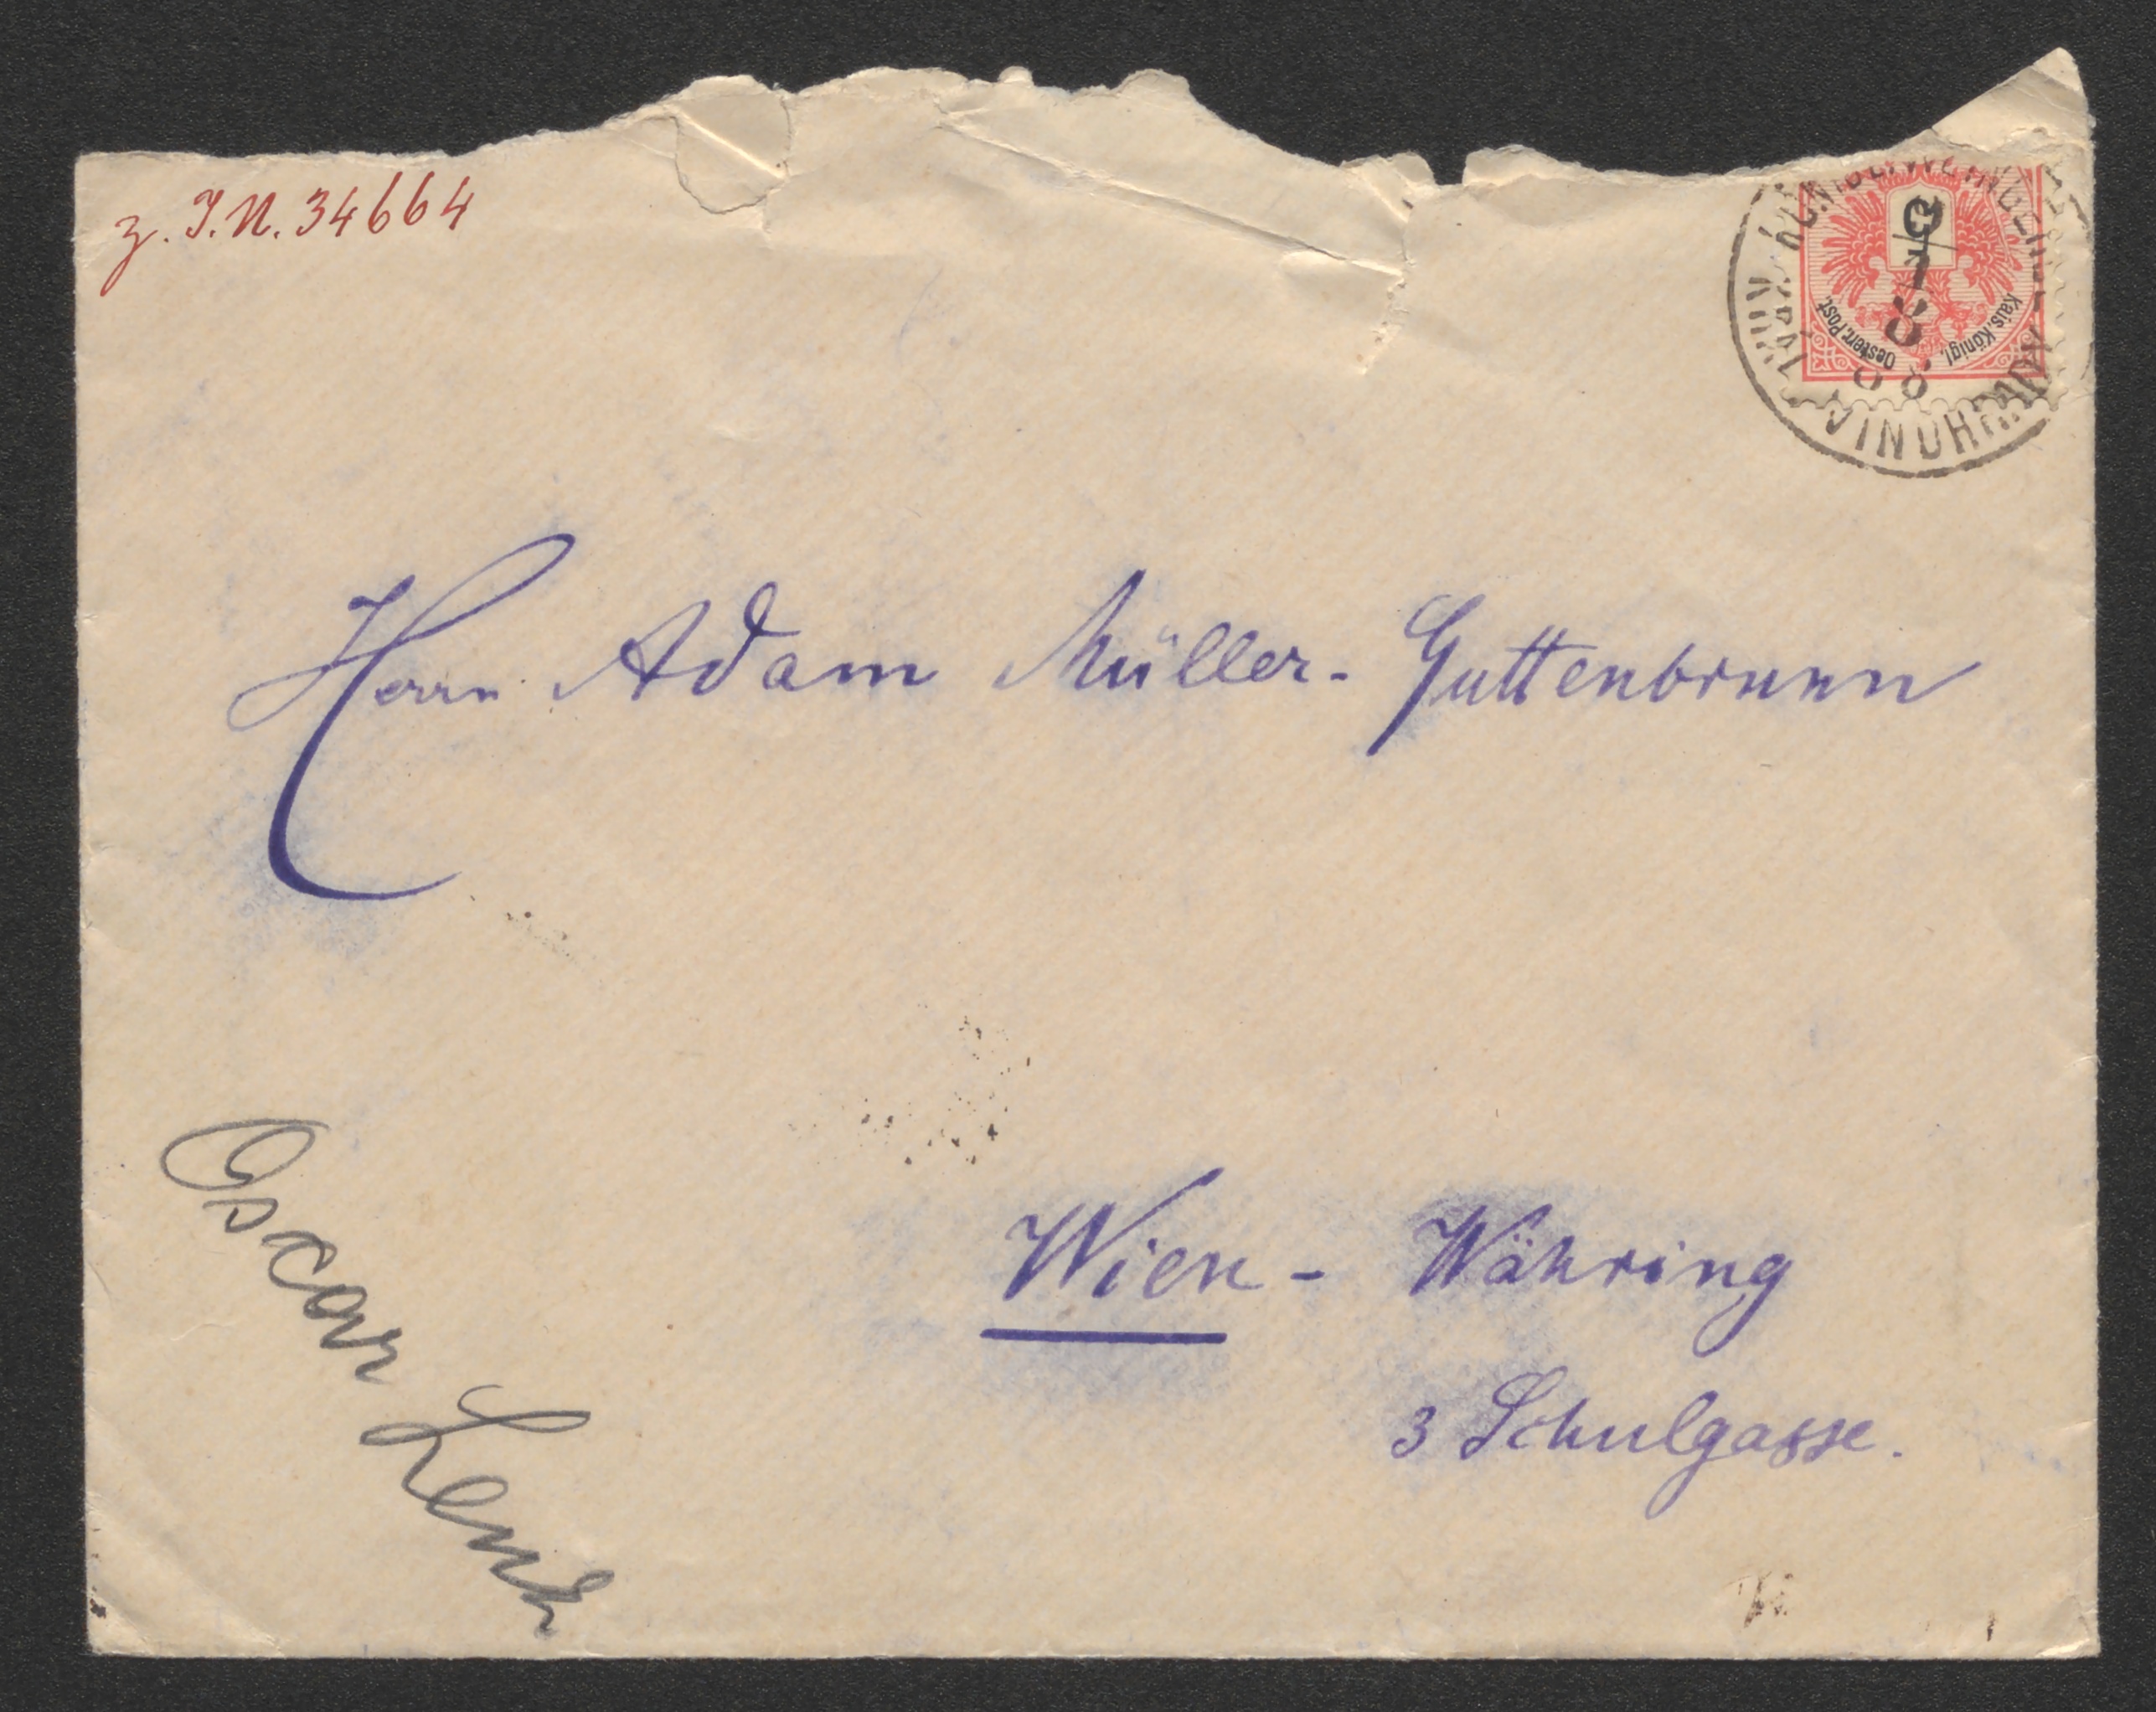 z. I.N. 34664
Kais. Königl. Oesterr. Post.
Herrn Adam Müller-Guttenbrunn
Wien - Währing
3 Schulgasse.
Oscar Lenz